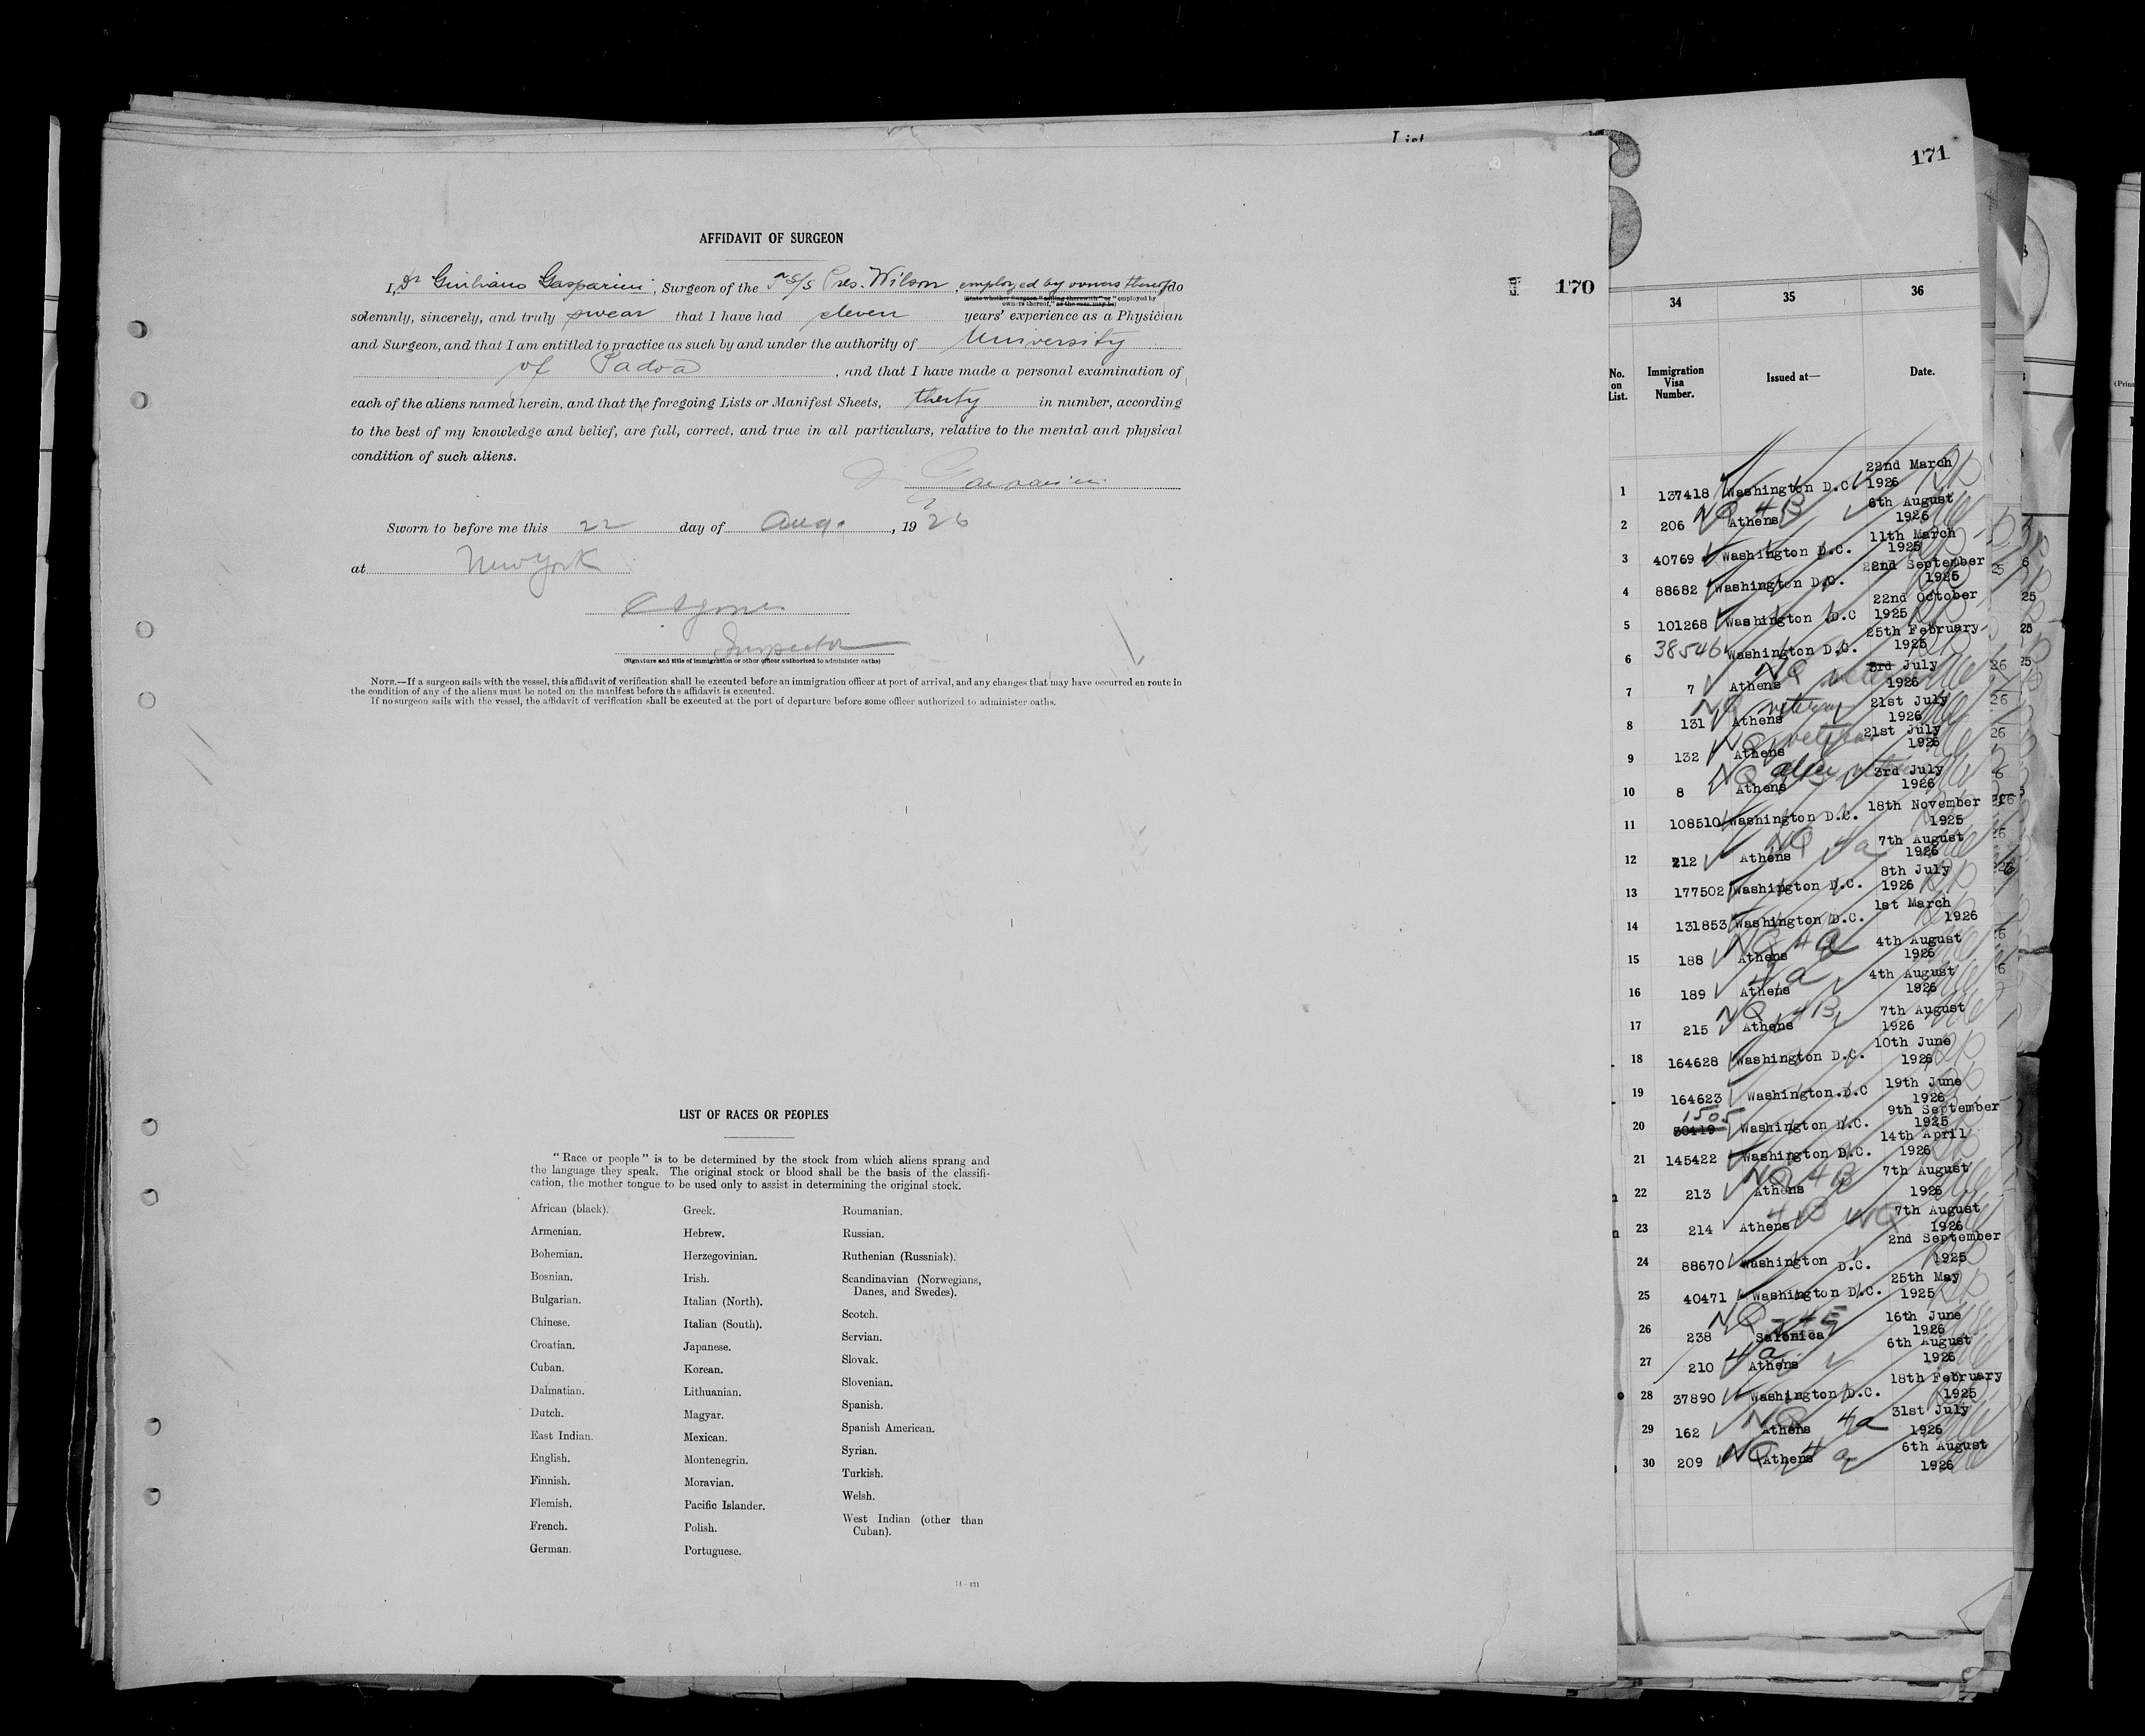 AFFIDAVIT OF SURGEON
I, Dr Giuliano Gasparini, Surgeon of the S/S Pres. Wilson, employed by owners thereof do
(State whether Surgeon "sailing therewith" or "employed by
owners thereof," as the case may be)
solemnly, sincerely, and truly swear that I have had eleven years' experience as a Physician
and Surgeon, and that I am entitled to practice as such by and under the authority of University
of Padova, and that I have made a personal examination of
each of the aliens named herein, and that the foregoing Lists or Manifest Sheets, thirty in number, according
to the best of my knowledge and belief, are full, correct, and true in all particulars, relative to the mental and physical
condition of such aliens.
Sworn to before me this 22 day of Aug., 1926
at New York
Inspector
(Signature and title of immigration or other officer authorized to administer oaths)
NOTE.—If a surgeon sails with the vessel, this affidavit of verification shall be executed before an immigration officer at port of arrival, and any changes that may have occurred en route in
the condition of any of the aliens must be noted on the manifest before the affidavit is executed.
If no surgeon sails with the vessel, the affidavit of verification shall be executed at the port of departure before some officer authorized to administer oaths.
LIST OF RACES OR PEOPLES
"Race or people" is to be determined by the stock from which aliens sprang and
the language they speak. The original stock or blood shall be the basis of the classifi-
cation, the mother tongue to be used only to assist in determining the original stock.
African (black).
Armenian.
Bohemian.
Bosnian.
Bulgarian.
Chinese.
Croatian.
Cuban.
Dalmatian.
Dutch.
East Indian.
English.
Finnish.
Flemish.
French.
German.
Greek.
Hebrew.
Herzegovinian.
Irish.
Italian (North).
Italian (South).
Japanese.
Korean.
Lithuanian.
Magyar.
Mexican.
Montenegrin.
Moravian.
Pacific Islander.
Polish.
Portuguese.
Roumanian.
Russian.
Ruthenian (Russniak).
Scandinavian (Norwegians,
Danes, and Swedes).
Scotch.
Servian.
Slovak.
Slovenian.
Spanish.
Spanish American.
Syrian.
Turkish.
Welsh.
West Indian (other than
Cuban).
List
170
171
34 35 36
No. on List. Immigration Visa Number. Issued at— Date.
1 137418 Washington D.C. 22nd March 1926
2 206 NQ 4B Athens 6th August 1926
3 40769 Washington D.C. 11th March 1925
4 88682 Washington D.C. 22nd September 1925
5 101268 Washington D.C 22nd October 1925
6 38546 Washington D.C. 25th February 1925
7 7 Athens NQ 3rd July 1926
8 131 Athens veteran 21st July 1926
9 132 NQ veteran Athens 21st July 1926
10 8 NQ Athens 3rd July 1926
11 108510 Washington D.C. 18th November 1925
12 212 NQ 4a Athens 7th August 1926
13 177502 Washington D.C. 8th July 1926
14 131853 Washington D.C. 1st March 1926
15 188 NQ 4a Athens 4th August 1926
16 189 4a Athens 4th August 1926
17 215 NQ 4B Athens 7th August 1926
18 164628 Washington D.C. 10th June 1926
19 164623 Washington.D.C 19th June 1926
20 1505 30419 Washington D.C. 9th September 1925
21 145422 Washington D.C. 14th April 1926
22 213 NQ 4B Athens 7th August 1926
23 214 Athens 4B NQ 7th August 1926
24 88670 Washington D.C. 2nd September 1925
25 40471 Washington D.C. 25th May 1925
26 238 NQ 4E Salonica 16th June 1926
27 210 4a Athens 6th August 1926
28 37890 Washington D.C. 18th February 1925
29 162 NQ 4a Athens 31st July 1926
30 209 NQ 4a Athens 6th August 1926